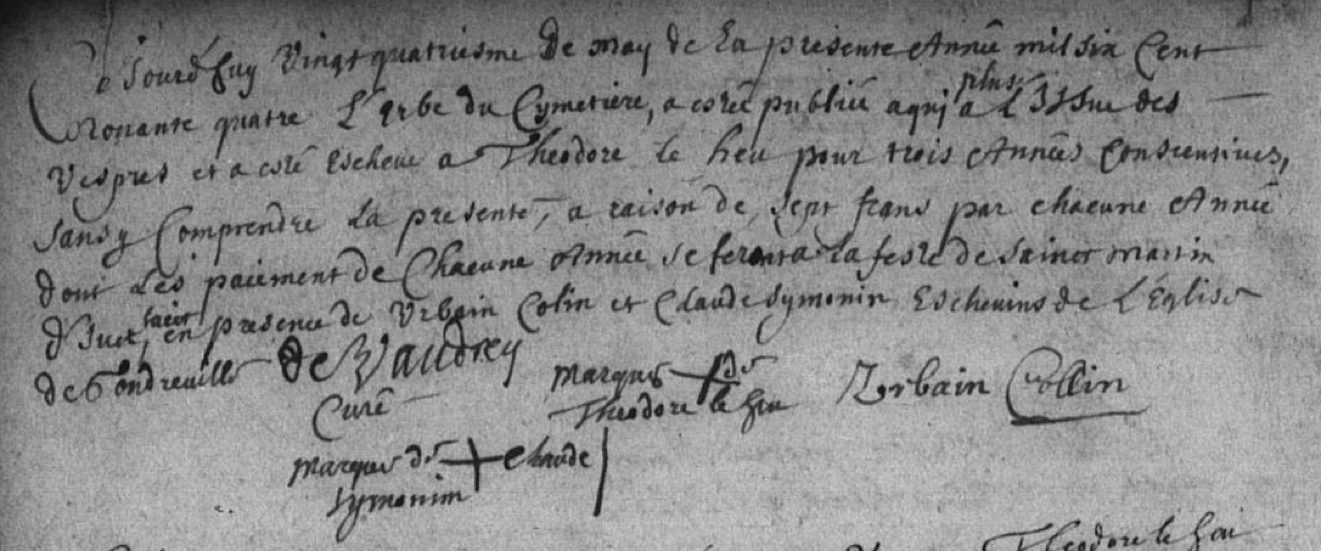 Ce Jourd'huy Vingt quatriesme De may de La presente Année mil six Cent
Coronante quatre L'Erbe du Cymetiere, a esté publiée a qui plus a L'Issue des
Vespres et a esté Escheue a Theodore le heu pour trois Années Consecutives,
Sans y Comprendre La presente, a raison de sept frans par chacune Année
dont Les paiement de Chacune Année se feront a la feste de Sainct Martin
d'Yver, faict en presence de Urbain Colin et Claude Symonin Eschevins de L'Eglise
de Gondreville de Vaudrey
Curé
marque + de
Theodore le heu
Urbain Collin
marque de + Claude
Symonin
Theodore le heu